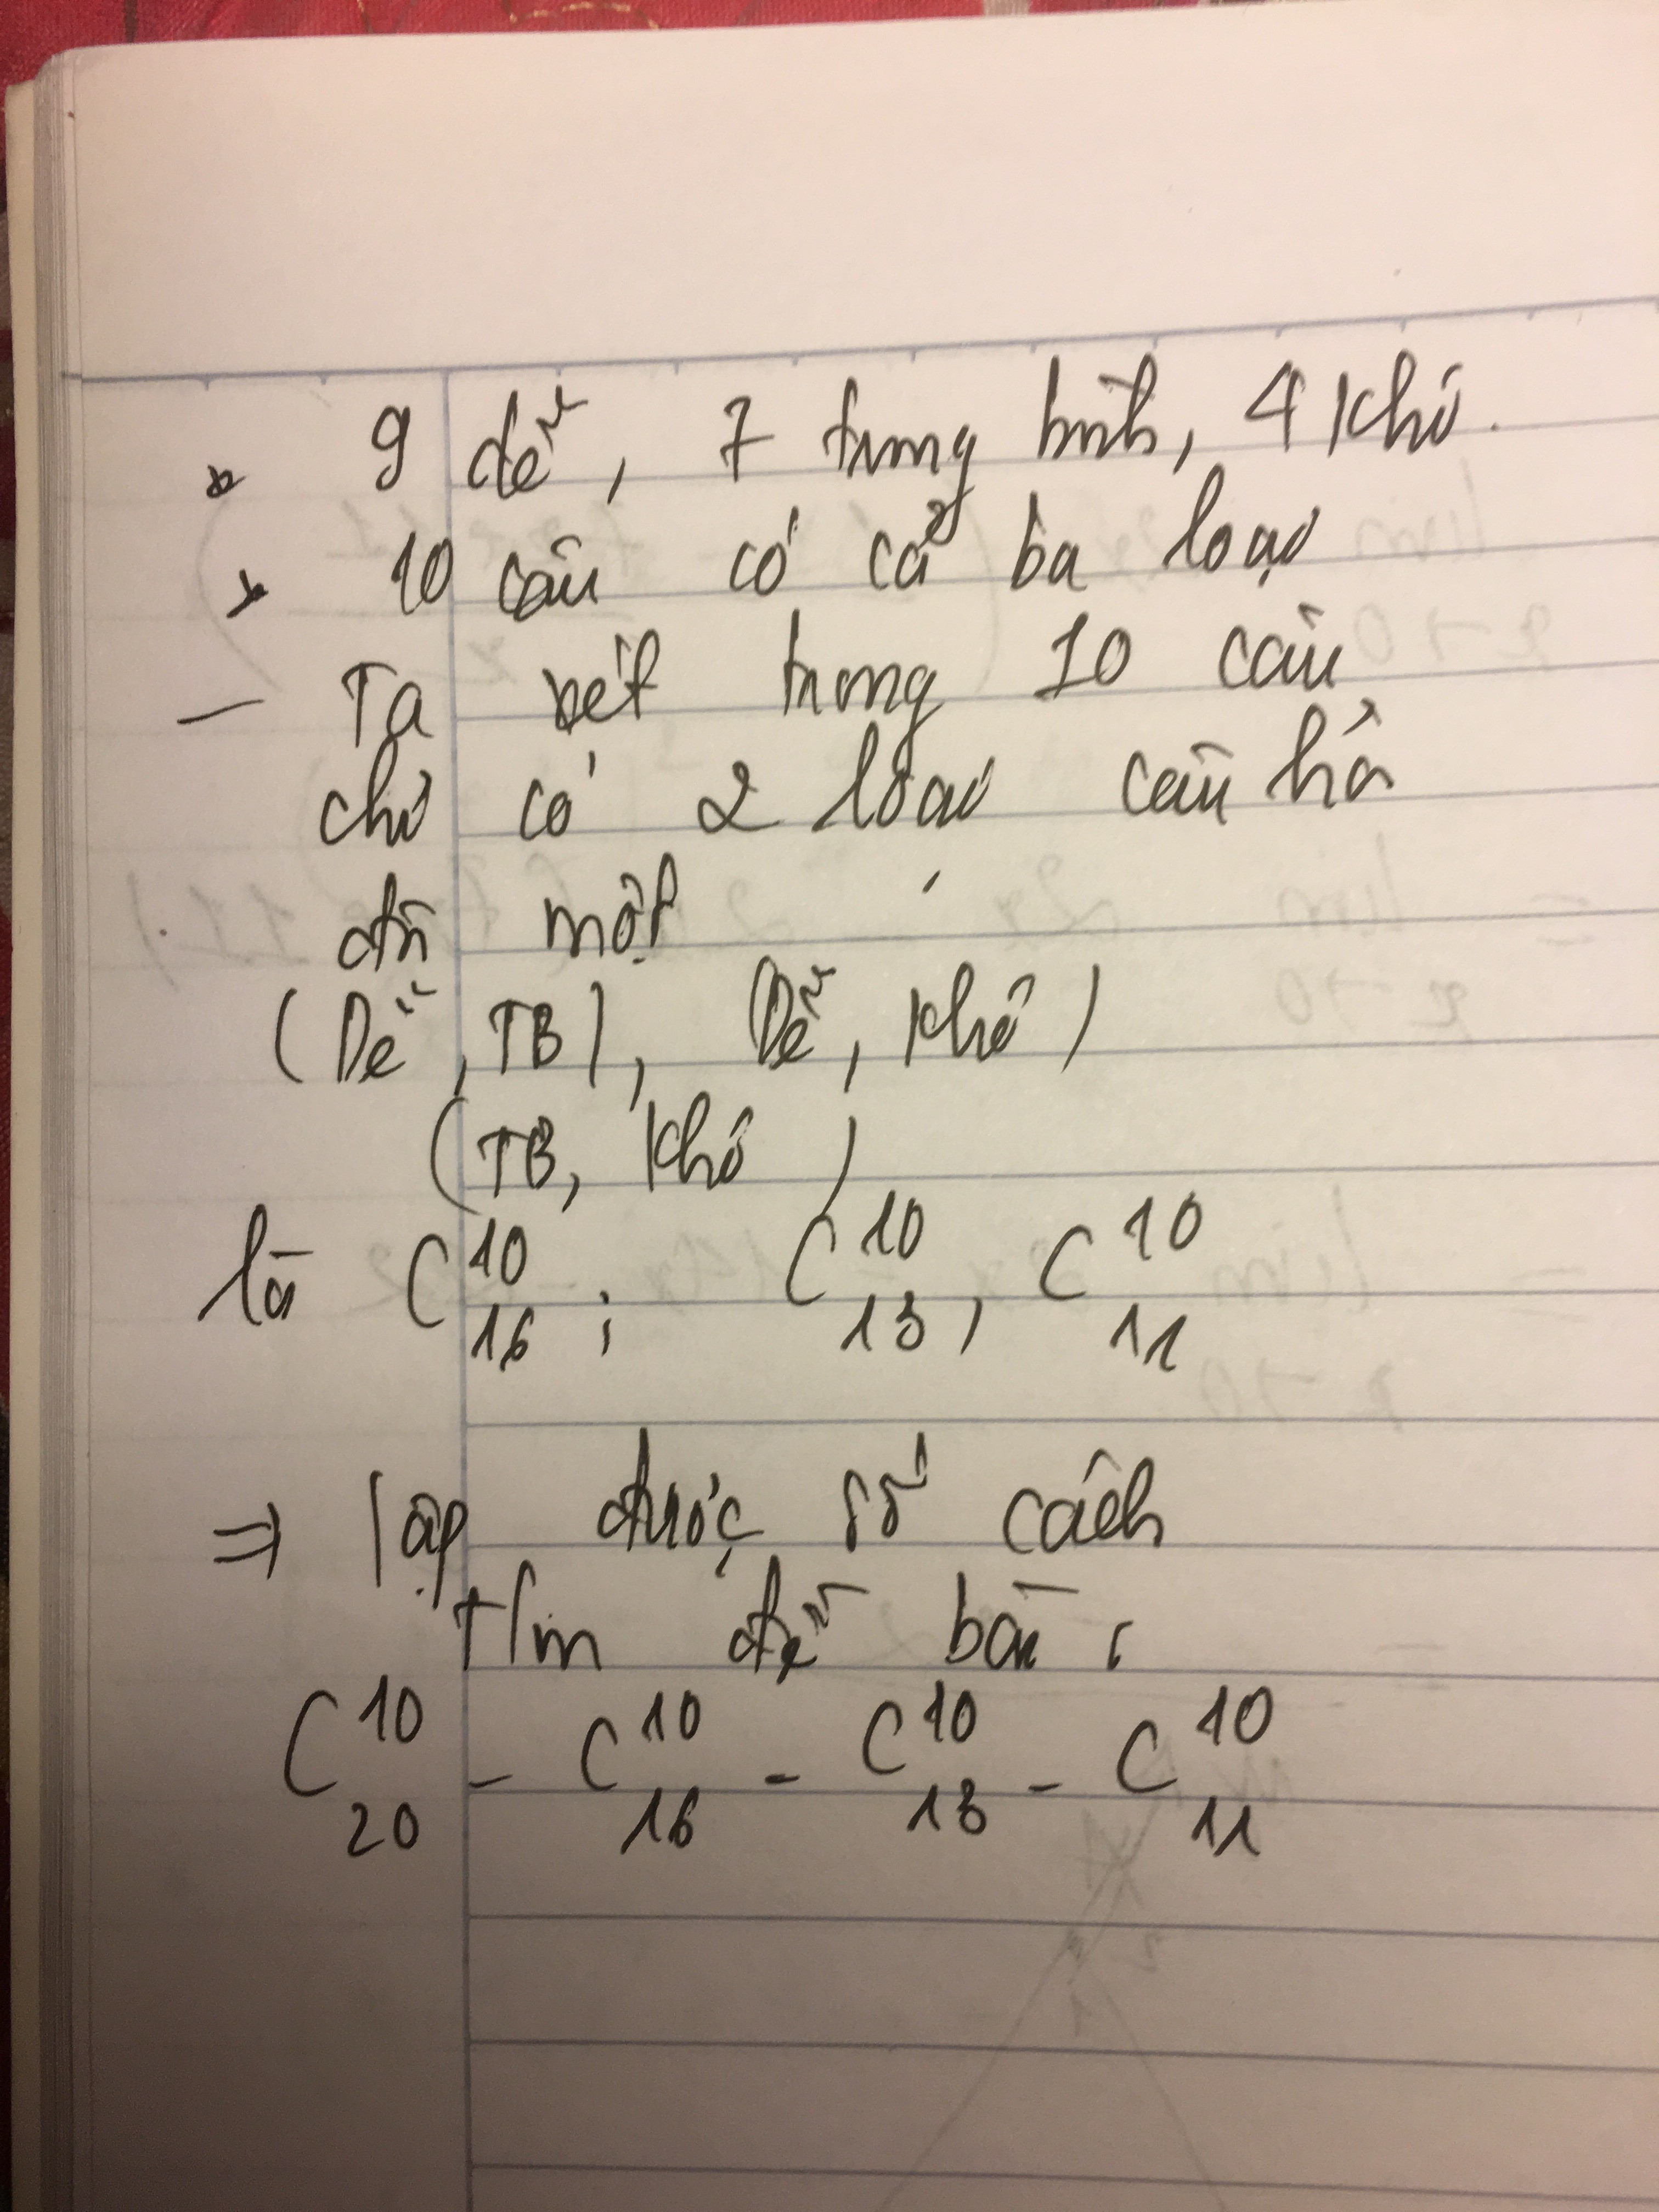 * 9 dễ, 7 trung bình, 4 khó.
* 10 câu có cả ba loại
- Ta xét trong 10 câu
chỉ có 2 loại câu hỏi
đổ một
(Dễ, TB), Dễ, Khó)
(TB, Khó)
là C₁₆¹⁰; C₁₃¹⁰, C₁₁¹⁰
⇒ lập được số cách
tìm đề bài:
C₂₀¹⁰ - C₁₆¹⁰ - C₁₃¹⁰ - C₁₁¹⁰